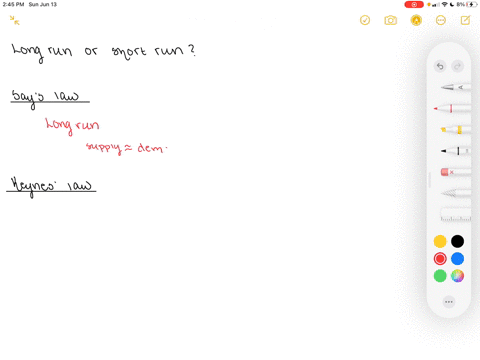 2:45 PM Sun Jun 13
8%
Long run or short run?
Say's law
Long run
supply ≈ dem.
Keynes' law